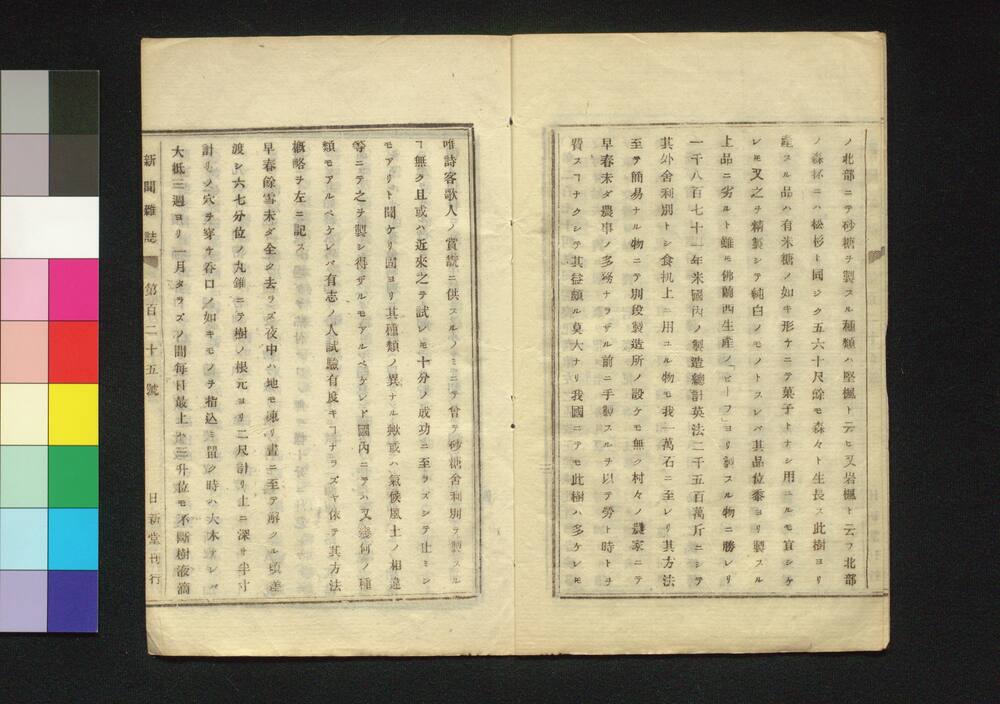 ノ北部ニテ砂糖ヲ製スル種類ハ堅楓ト云ヒ又岩楓ト云フ北部
ノ森林ニハ松杉ト同ジク五六十尺餘モ森々ト生長ス此樹ヨリ
産スル品ハ有米糖ノ如キ形ケニテ菓子トナシ用ユルモ宜シケ
レモ又之ヲ精製シテ純白ノモノトスレバ其品位黍ヨリ製スル
上品ニ劣ルト雖モ佛蘭西生産ノ「ビーフ」ヨリ製スル物ニ勝レリ
一千八百七十一年米國内ノ製造總計英法二千五百萬斤ニシテ
其外舍利別トシ食机上ニ用ユル物モ我一萬石ニ至レリ其方法
至テ簡易ナル物ニテ別段製造所ノ設ケモ無ク村々ノ農家ニテ
早春未ダ農事ノ多務ナラザル前ニ手製スルヲ以テ勞ト時トヲ
費スヿナクシテ其益頗ル莫大ナリ我國ニテモ此樹ハ多ケレモ
唯詩客歌人ノ賞翫ニ供スルノミニテ曾テ砂糖舍利別ヲ製スル
ヿ無ク且或ハ近來之ヲ試シレモ十分ノ成功ニ至ラズシテ止ミシ
モアリト聞ケリ固ヨリ其種類ノ異ナル歟或ハ氣候風土ノ相違
等ニテ之ヲ製シ得ザルモアルベケレド國内ニテハ又幾何ノ種
類モアルベケレバ有志ノ人試驗有度キヿナラズヤ依テ其方法
概略ヲ左ニ記ス
早春餘雪未ダ全ク去ラズ夜中ハ地モ凍リ晝ニ至テ解クル頃差
渡シ六七分位ノ丸錐ニテ樹ノ根元ヨリ二尺計リ上ニ深サ半寸
計リノ穴ヲ穿ケ呑口ノ如キモノヲ指込ミ置ク時ハ大木ナレバ
大抵三週ヨリ一月タラズノ間毎日最上ハ三升位モ不斷樹液滴
新聞雜誌 第百二十五號 日新堂刊行